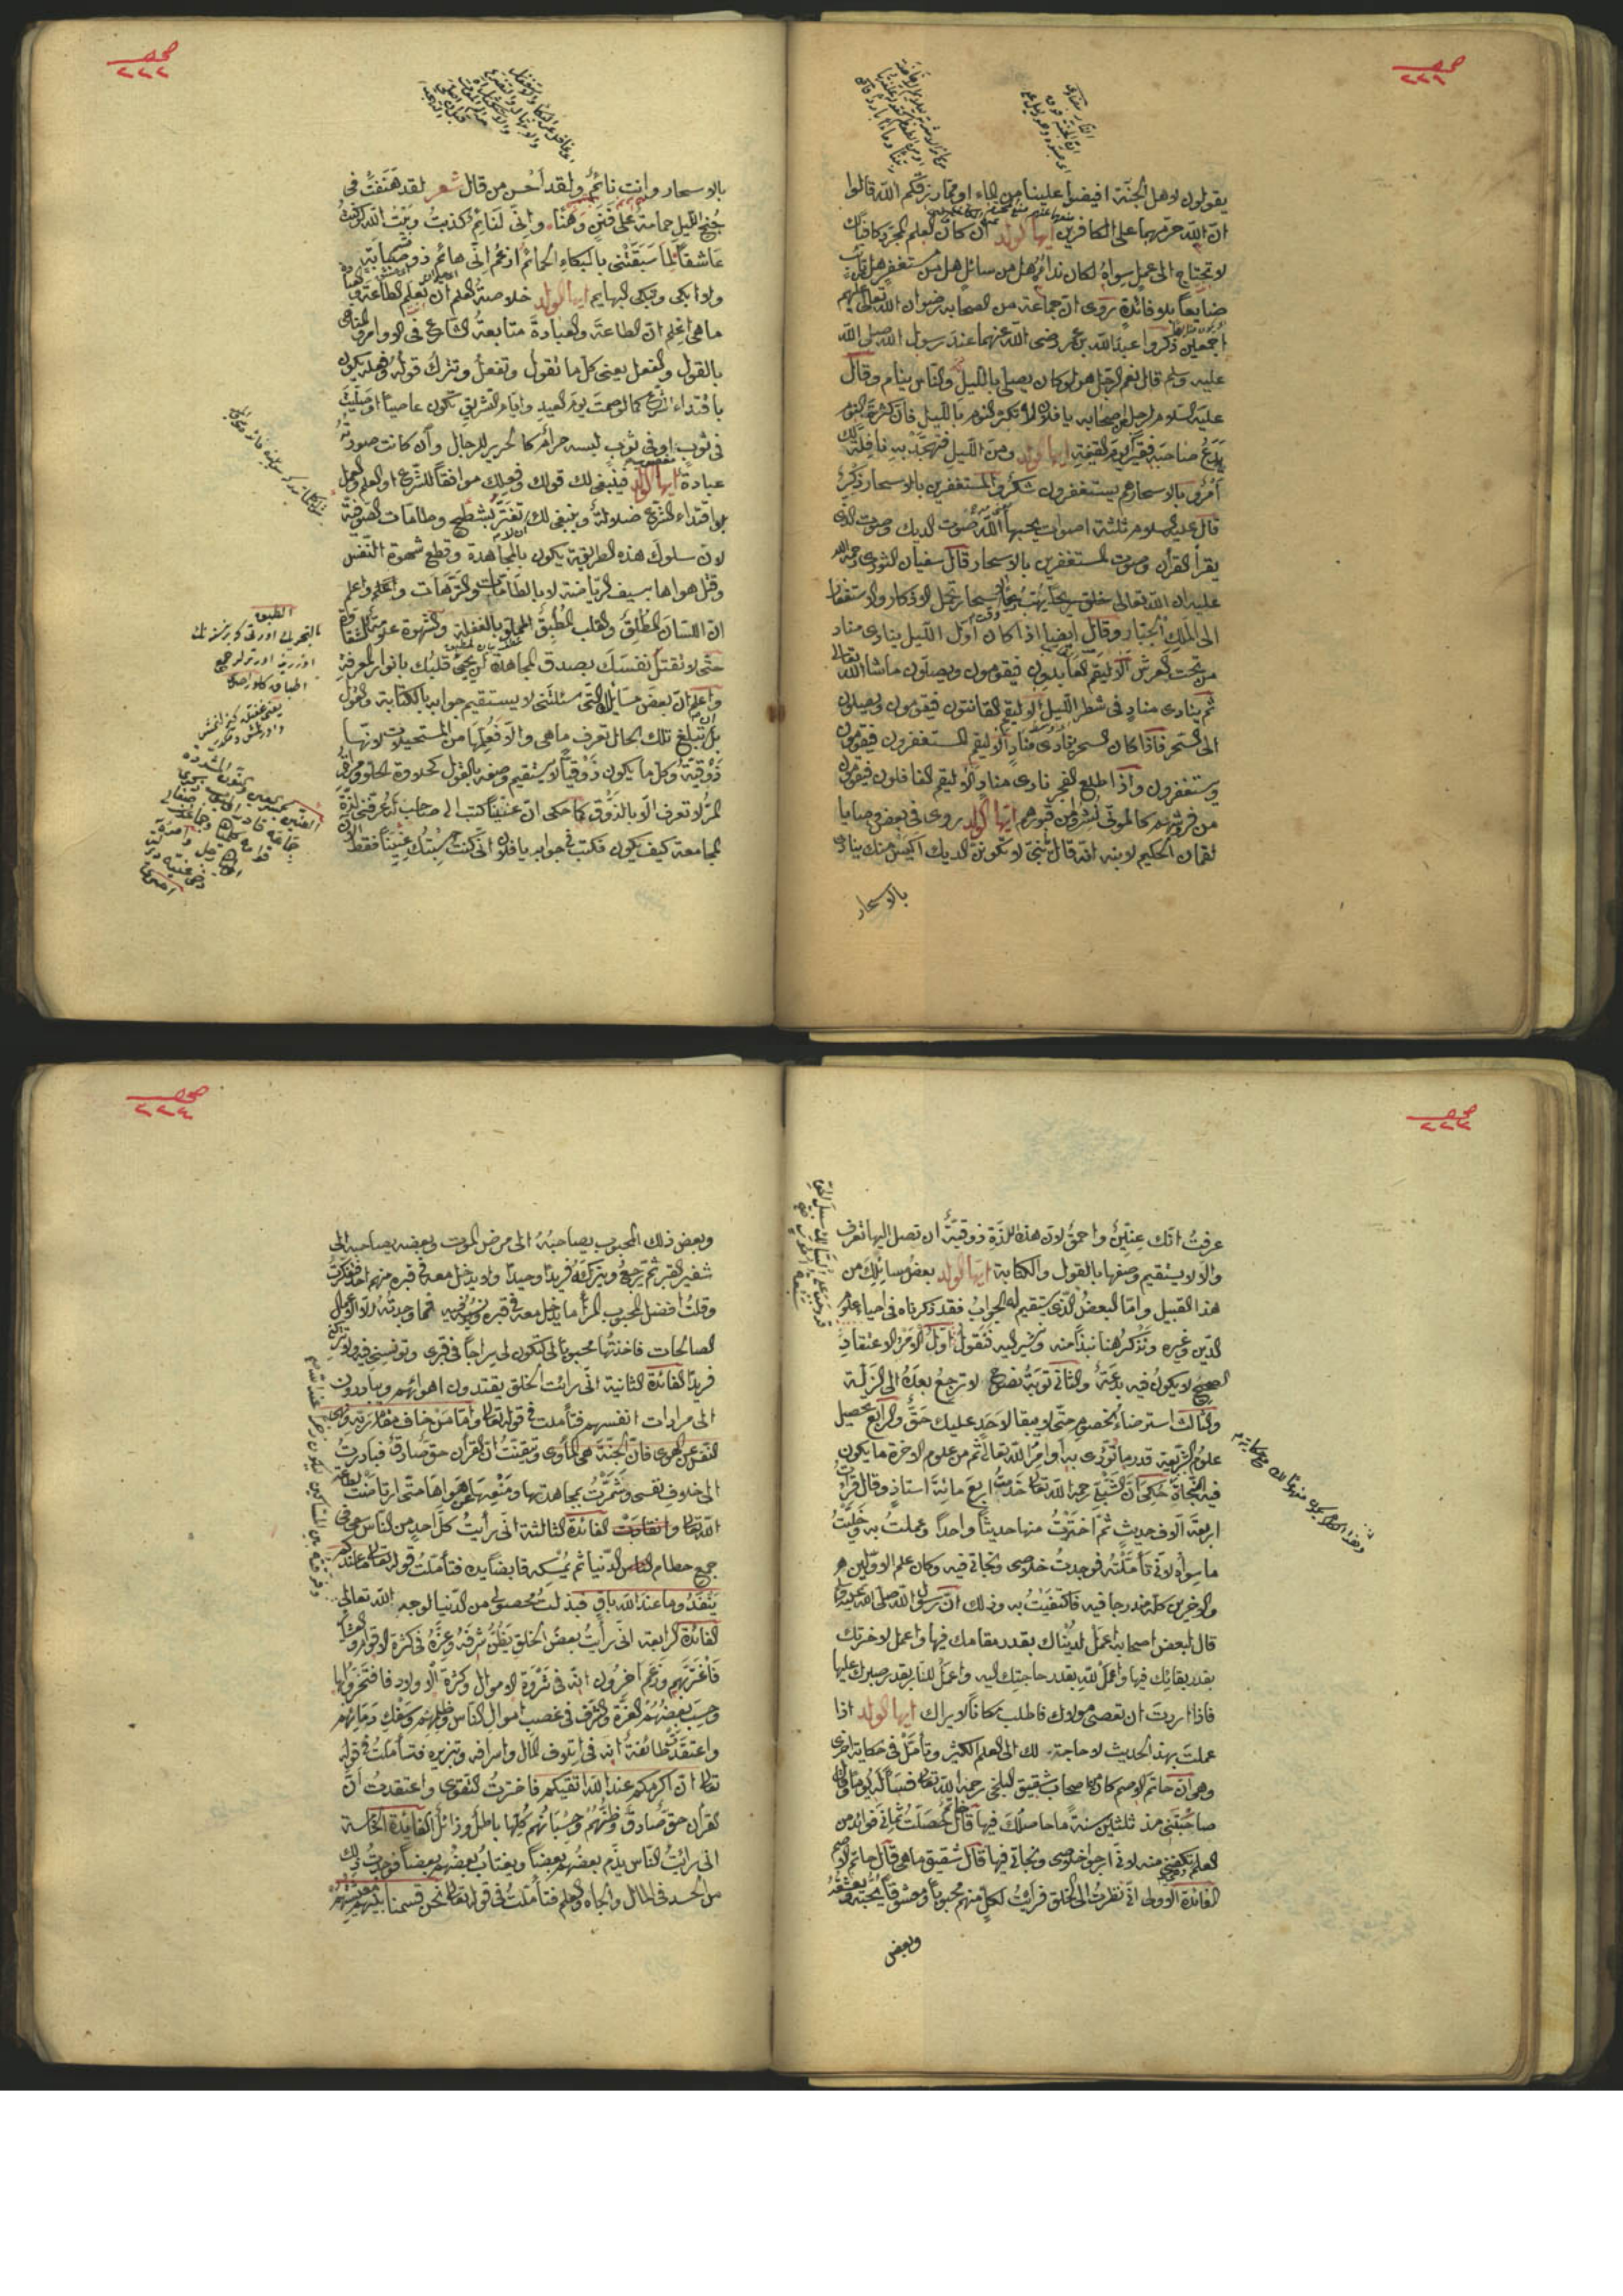 صحـ
٢٢١
يقولون لاهل الجنة افيضوا علينا من الماء او مما رزقكم الله قالوا
ان الله حرمهما على الكافرين ايها الولد ان كان العلم المجرد كافيا لك
لا تحتاج الى عمل سواه لكان نداء هل من سائل هل من مستغفر هل من تائب
ضايعا بلا فائدة روى ان جماعة من الصحابه رضوان الله تعالى عليهم
اجمعين ذكروا عبد الله بن عمر رضى الله عنهما عند رسول الله صلى الله
عليه وسلم قال نعم الرجل هو لو كان يصلى بالليل والناس ينام وقال
عليه السلام لرجل من اصحابه يا فلان لا تكثر النوم بالليل فان كثرة النوم
يدع صاحبه فقيرا يوم القيمة ايها الولد ومن الليل فتهجد به نافلة لك
امر وبالاسحار هم يستغفرون شكر والمستغفرين بالاسحار ذكر
قال عليه السلام ثلثة اصوات يحبها الله صوت الديك وصوت الذى
يقرأ القرأن وصوت المستغفرين بالاسحار قال سفيان الثورى رحمة الله
عليه ان الله تعالى خلق ريحا يهب بالاسحار تحمل الاذكار والاستغفار
الى الملك الجبار وقال ايضا اذا كان اول الليل ينادى مناد
من تحت العرش الا ليقم العابدون فيقومون ويصلون ماشا الله تعالى
ثم ينادى مناد فى شطر الليل الا ليقم القانتون فيقومون ويصلون
الى السحر فاذا كان السحر ينادى مناد الا ليقم المستغفرون فيقومون
ويستغفرون واذا طلع الفجر نادى مناد الا ليقم الغافلون فيقومون
من فروشهم كالموتى نشروا من قبورهم ايها الولد روى فى بعض وصايا
لقمان الحكيم لابنه انه قال يا بنى لا تكونن الديك اكيس منك ينادى
بالاسحار
صحـ
٢٢٢
بالاسحار وانت نائم ولقد احسن من قال شعر لقد هتفت فى
جنح الليل حمامة على فنن وهنا وانى لنائم كذبت وبيت الله لو كنت
عاشقا لما سبقتنى بالبكاء الحمائم ازعم انى هائم ذو صبابة
ولا ابكى وتبكى البهايم ايها الولد خلاصة العلم ان تعلم الطاعة والعبادة
ما هى اعلم ان الطاعة والعبادة متابعة الشارع فى الاوامر والمناهى
بالقول والفعل يعنى كل ما تقول وتفعل وتترك قوله وفعله يكون
باقتداء الشرع كما لو صمت يوم العيد وايام التشريق تكون عاصيا او صليت
فى ثوب او فى ثوب لبسه حرام كالحرير للرجال وان كانت صورته
عبادة ايها الولد فينبغى لك قولك وفعلك موافقا للشرع اذ العلم والعمل
بلا اقتداء الشرع ضلالة وينبغى لك ان لا تغتر بشطح وطامات الصوفية
لان سلوك هذه الطريقة يكون بالمجاهدة وقطع شهوة النفس
وقتل هواها بسيف الرياضة لا بالطامات والترهات واعلم
ان اللسان المطلق والقلب المطبق المملو بالغفلة والشهوة علامة الشقاوة
حتى لا تقتل نفسك بصدق المجاهدة لن يحيى قلبك بانوار المعرفة
واعلم ان بعض مسايلك التى سئلتنى لا يستقيم جوابه بالكتابة والقول
بل ان تبلغ تلك الحال تعرف ما هى والا فعلمها من المستحيلات لانها
ذوقية وكل ما يكون ذوقيا لا يستقيم وصفه بالقول كحلاوة الحلو ومرارة
المر لا تعرف الا بالذوق كما حكى ان عنينا كتب الى صاحب له عرفنى لذة
المجامعة كيف يكون فكتب فى جوابه يا فلان انى كنت حسبتك عنينا فقط الآن
صحـ
٢٢٣
عرفت انك عنين واحمق لان هذه اللذة ذوقية ان تصل اليها تعرف
والا لا يستقيم وصفها بالقول والكتابة ايها الولد بعض مسائلك من
هذا القبيل واما البعض الذى يستقيم له الجواب فقد ذكرناه فى احياء علوم
الدين وغيره ونذكر هنا نبذا منه ونشير اليه فنقول اول الامر الاعتقاد
الصحيح لا يكون فيه بدعة والثانى توبة نصوح لا ترجع بعده الى الزلة
والثالث استرضاء الخصوم حتى لا يبقا لاحد عليك حق والرابع تحصيل
علوم الشريعة قدر ما تؤدى به اوامر الله تعالى ثم من علوم الاخرة ما يكون
فيه النجاة حكى ان الشبلى رحمه الله تعالى خدم اربع مائة استاذ وقال قرأت
اربعة آلاف حديث ثم اخترت منها حديثا واحدا وعملت به وخليت
ما سواه لانى تأملته فوجدت خلاصى ونجاتى فيه وكان علم الاولين
والاخرين كله مندرجا فيه فاكتفيت به وذلك ان رسول الله صلى الله عليه وسلم
قال لبعض اصحابه اعمل لدنياك بقدر مقامك فيها واعمل لاخرتك
بقدر بقائك فيها واعمل لله بقدر حاجتك اليه واعمل للنار بقدر صبرك عليها
فاذا اردت ان تعصى مولاك فاطلب مكانا لا يراك ايها الولد اذا
عملت بهذا الحديث لا حاجة لك الى العلم الكثير وتأمل فى حكاية اخرى
وهى ان حاتم الاصم كان من اصحاب شقيق البلخى رحمه الله تعالى فسأله يوما وقال
صاحبتنى منذ ثلثين سنة ما حاصلك فيها قال حاتم حصلت ثمانى فوائد من
العلم تكفينى منه لانى ارجو خلاصى ونجاتى فيها قال شقيق ما هى قال حاتم الاصم
الفائدة الاولى انى نظرت الى الخلق فرأيت لكل منهم محبوبا ومعشوقا يحبه ويعشقه
وبعض
صحـ
٢٢٤
وبعض ذلك المحبوب يصاحبه الى مرض الموت وبعضه يصاحبه الى
شفير القبر ثم يرجع ويتركه فريدا وحيدا ولا يدخل معه فى قبره منهم احد ففكرت
وقلت افضل المحبوب المرأ ما يدخل معه فى قبره ويونسه فيه فما وجدته الا الاعمال
الصالحات فاخذتها محبوبا لى لتكون لى سراجا فى قبرى وتونسنى فيه ولا تتركنى
فريدا الفائدة الثانية انى رائت الخلق يقتدون اهوائهم ويبادرون
الى مرادات انفسهم فتأملت فى قوله تعالى واما من خاف مقام ربه ونهى
النفس عن الهوى فان الجنة هى المأوى وتيقنت ان القرأن حق صادق فبادرت
الى خلاف نفسى وشمرت بمجاهدتها ومنعها عن هواها حتى ارتاضت بطاعة
الله تعالى وانقادت الفائدة الثالثة انى رأيت كل احد من الناس سعى فى
جمع حطام الدنيا ثم يمسكه قابضا يده فتأملت قوله تعالى ما عندكم
ينفد وما عند الله باق فبذلت محصولى من الدنيا لوجه الله تعالى
الفائدة الرابعة انى رأيت بعض الخلق يظن شرفه وعزه فى كثرة الاقوام والعشائر
فاغتر بهم وزعم آخرون انه فى ثروة الاموال وكثرة الاولاد فافتخروا بها
وحسب بعضهم العزة والشرف فى غصب اموال الناس وظلمهم وسفك دمائهم
واعتقدت طائفة انه فى اتلاف المال واسرافه وتبزيره فتأملت فى قوله
تعالى ان اكرمكم عند الله اتقيكم فاخترت التقوى واعتقدت ان
القرأن حق صادق وظنهم وحسبانهم كلها باطل وزائل الفائدة الخامسة
انى رائت الناس يذم بعضهم بعضا ويغتاب بعضهم بعضا فوجدت ذلك
من الحسد فى المال والجاه والعلم فتأملت فى قوله تعالى نحن قسمنا بينهم معيشتهم